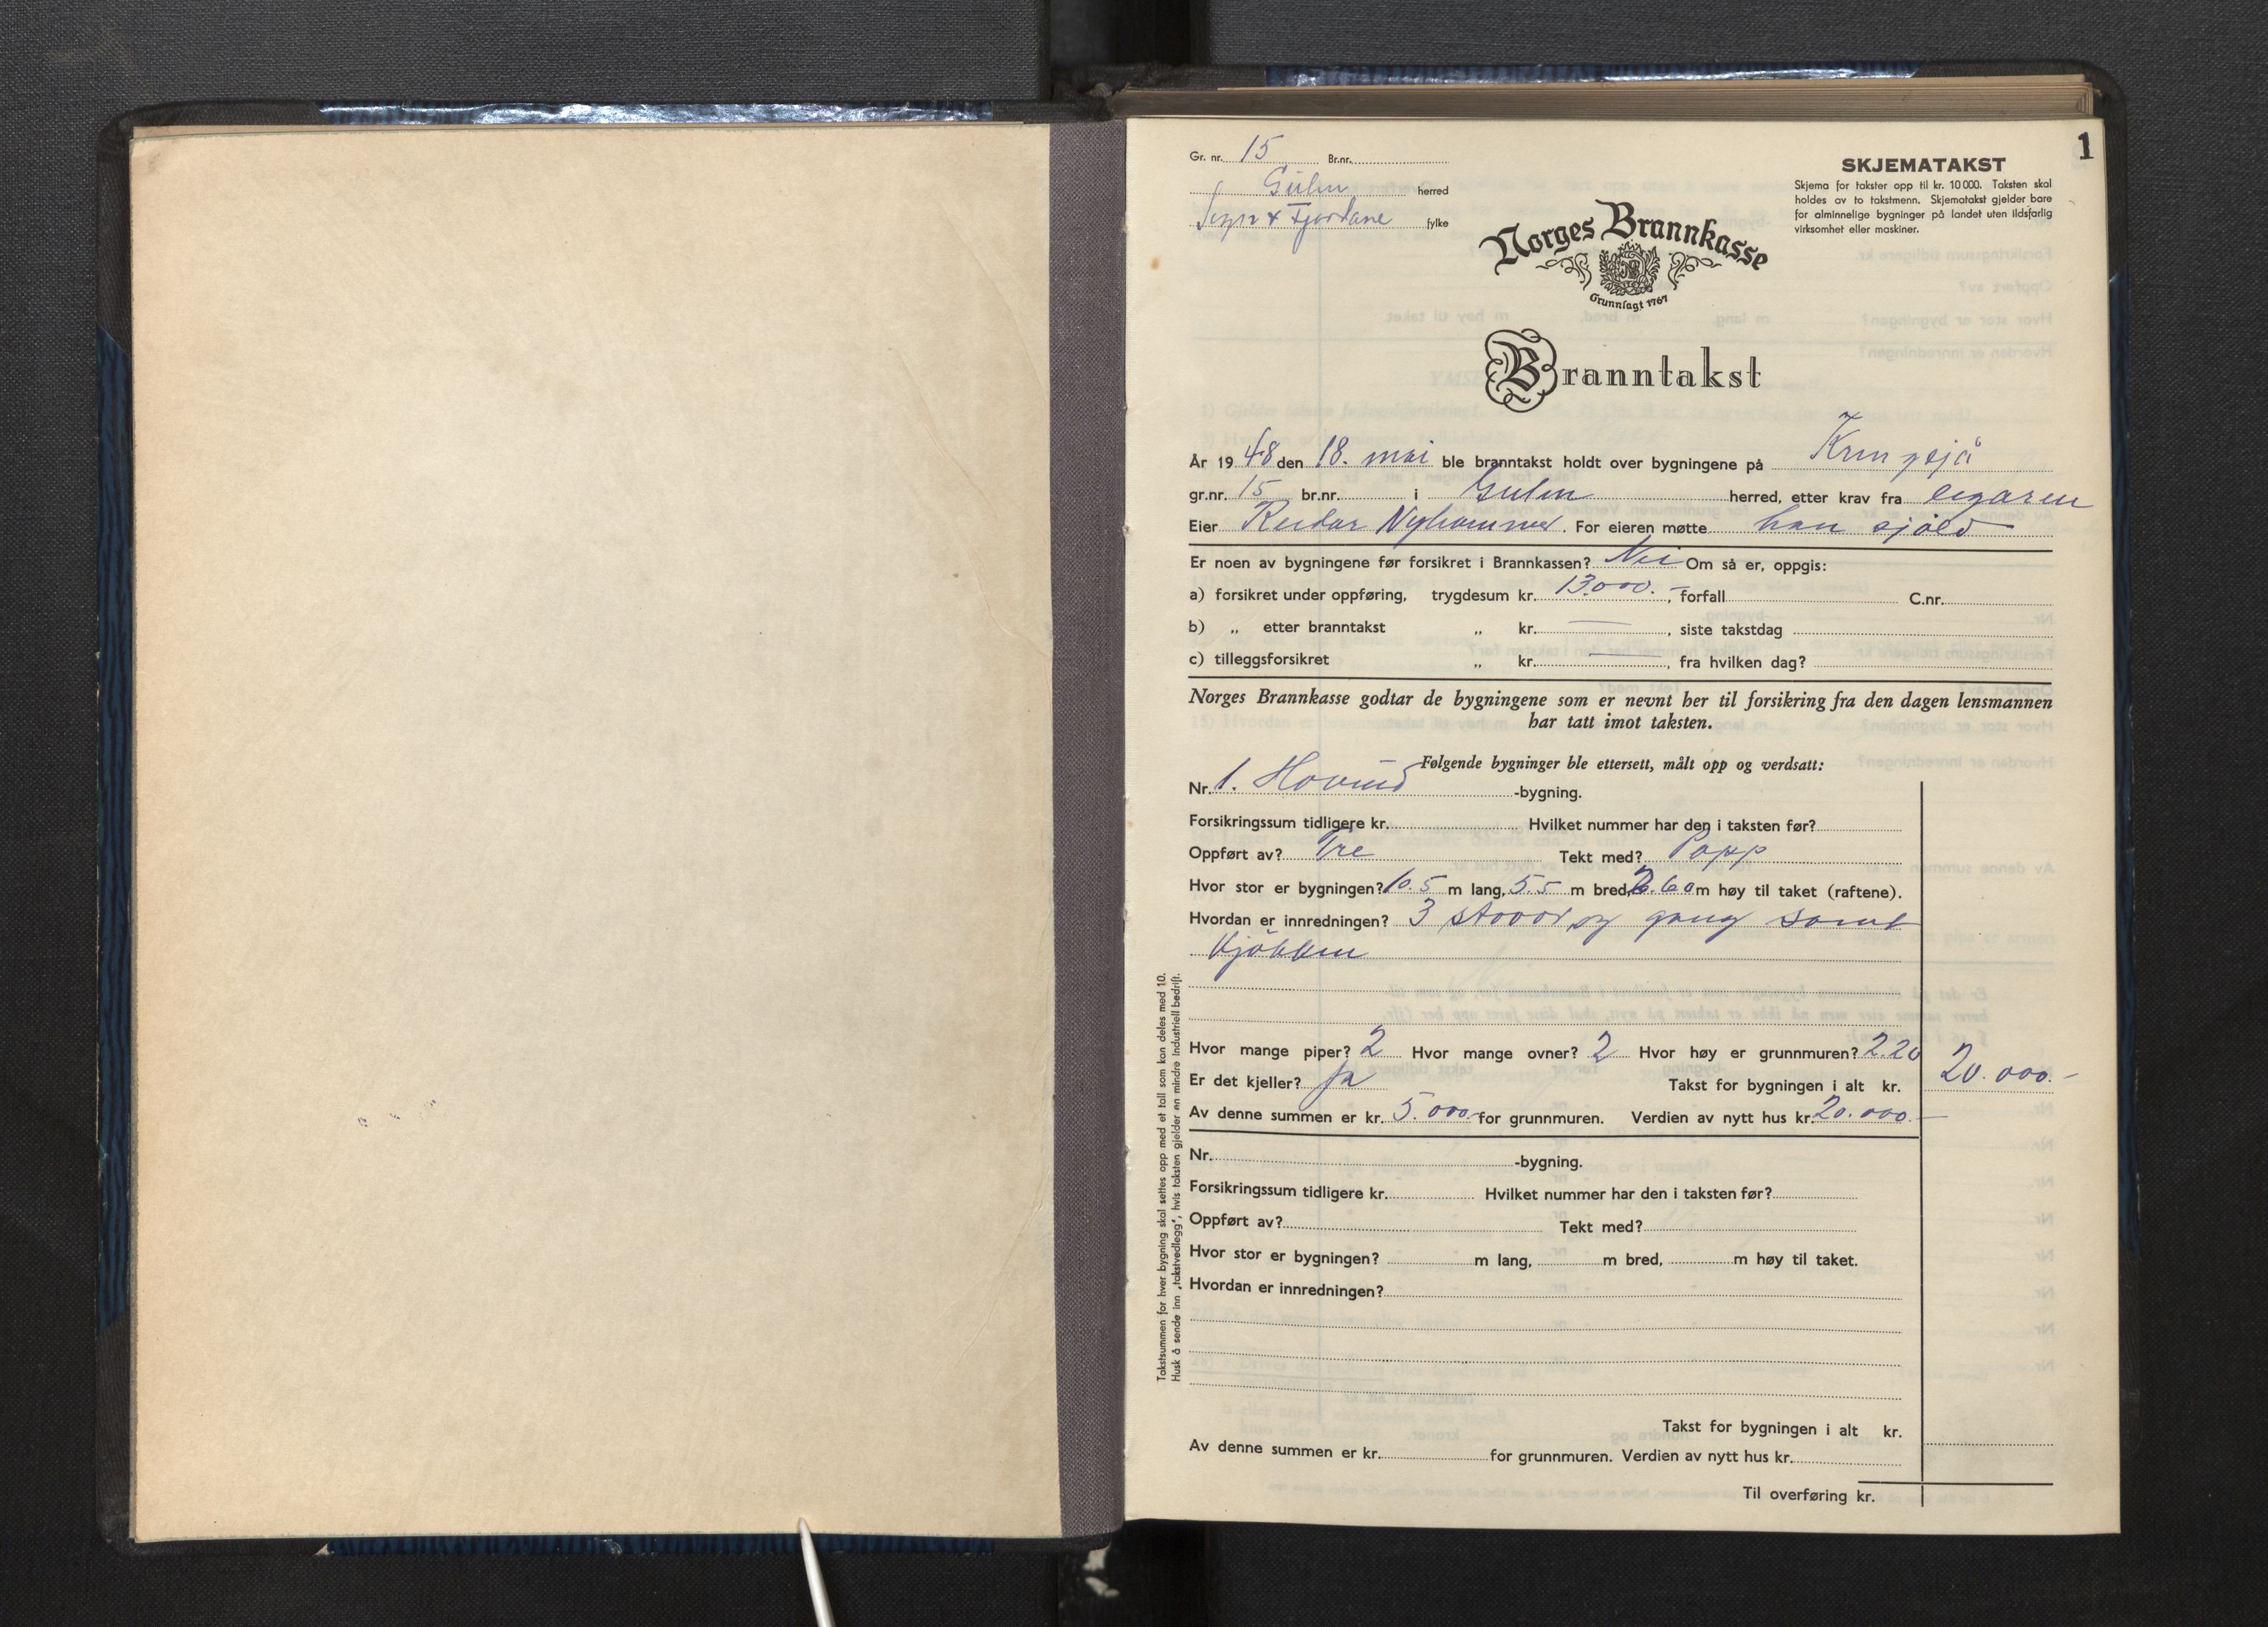 1
Gr. nr. 15 Br.nr.
Gulen herred
Sogn & Fjordane fylke
SKJEMATAKST
Skjema for takster opp til kr. 10 000. Taksten skal
holdes av to takstmenn. Skjematakst gjelder bare
for alminnelige bygninger på landet uten ildsfarlig
virksomhet eller maskiner.
Norges Brannkasse
Grunnlagt 1767
Branntakst
År 1948 den 18. mai ble branntakst holdt over bygningene på Kringsjå
gr.nr. 15 br.nr. i Gulen herred, etter krav fra eigaren
Eier Reidar Nyhammer. For eieren møtte han sjølv
Er noen av bygningene før forsikret i Brannkassen? Nei Om så er, oppgis:
a) forsikret under oppføring, trygdesum kr. 13.000.-, forfall C.nr.
b) „ etter branntakst „ kr. —, siste takstdag
c) tilleggsforsikret „ kr. —, fra hvilken dag?
Norges Brannkasse godtar de bygningene som er nevnt her til forsikring fra den dagen lensmannen
har tatt imot taksten.
Følgende bygninger ble ettersett, målt opp og verdsatt:
Nr. 1. Hovud -bygning.
Forsikringssum tidligere kr. Hvilket nummer har den i taksten før?
Oppført av? Tre Tekt med? Papp
Hvor stor er bygningen? 10.5 m lang, 5.5 m bred, 2.60 m høy til taket (raftene).
Hvordan er innredningen? 3 stover og gang samt
kjøkken
Hvor mange piper? 2 Hvor mange ovner? 2 Hvor høy er grunnmuren? 2.20
Er det kjeller? Ja Takst for bygningen i alt kr. 20.000.-
Av denne summen er kr. 5.000.- for grunnmuren. Verdien av nytt hus kr. 20.000.-
Nr. -bygning.
Forsikringssum tidligere kr. Hvilket nummer har den i taksten før?
Oppført av? Tekt med?
Hvor stor er bygningen? m lang, m bred, m høy til taket.
Hvordan er innredningen?
Takst for bygningen i alt kr.
Av denne summen er kr. for grunnmuren. Verdien av nytt hus kr.
Til overføring kr.
Takstsummen for hver bygning skal settes opp med et tall som kan deles med 10.
Husk å sende inn „takstvedlegg", hvis taksten gjelder en mindre industriell bedrift.